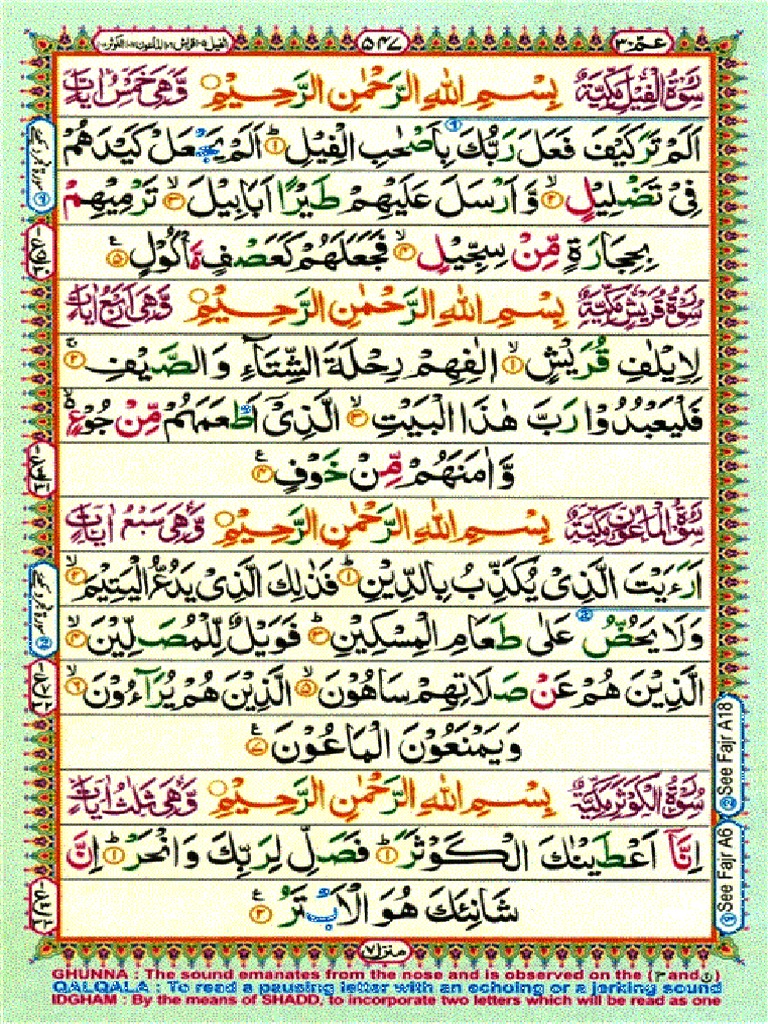 عم ٣٠ ٥٤٧ الفيل ١٠٥ قريش ١٠٦ الماعون ١٠٧ الكوثر ١٠٨
سُوْرَةُ الْفِيْلِ مَكِّيَّةٌ بِسْمِ اللهِ الرَّحْمٰنِ الرَّحِيْمِ وَّهِىَ خَمْسُ اٰيَاتٍ
اَلَمْ تَرَ كَيْفَ فَعَلَ رَبُّكَ بِاَصْحٰبِ الْفِيْلِ ؕ﴿۱﴾ اَلَمْ يَجْعَلْ كَيْدَهُمْ
فِىْ تَضْلِيْلٍ ۙ﴿۲﴾ وَّ اَرْسَلَ عَلَيْهِمْ طَيْرًا اَبَابِيْلَ ۙ﴿۳﴾ تَرْمِيْهِمْ
بِحِجَارَةٍ مِّنْ سِجِّيْلٍ ۙ﴿۴﴾ فَجَعَلَهُمْ كَعَصْفٍ مَّاْكُوْلٍ ﴿۵﴾
سُوْرَةُ قُرَيْشٍ مَكِّيَّةٌ بِسْمِ اللهِ الرَّحْمٰنِ الرَّحِيْمِ وَّهِىَ اَرْبَعُ اٰيَاتٍ
لِاِيْلٰفِ قُرَيْشٍ ۙ﴿۱﴾ اٖلٰفِهِمْ رِحْلَةَ الشِّتَآءِ وَ الصَّيْفِ ۚ﴿۲﴾
فَلْيَعْبُدُوْا رَبَّ هٰذَا الْبَيْتِ ۙ﴿۳﴾ الَّذِىْٓ اَطْعَمَهُمْ مِّنْ جُوْعٍ ۙ
وَّ اٰمَنَهُمْ مِّنْ خَوْفٍ ﴿۴﴾
سُوْرَةُ الْمَاعُوْنِ مَكِّيَّةٌ بِسْمِ اللهِ الرَّحْمٰنِ الرَّحِيْمِ وَّهِىَ سَبْعُ اٰيَاتٍ
اَرَءَيْتَ الَّذِىْ يُكَذِّبُ بِالدِّيْنِ ؕ﴿۱﴾ فَذٰلِكَ الَّذِىْ يَدُعُّ الْيَتِيْمَ ۙ﴿۲﴾
وَ لَا يَحُضُّ عَلٰى طَعَامِ الْمِسْكِيْنِ ؕ﴿۳﴾ فَوَيْلٌ لِّلْمُصَلِّيْنَ ۙ﴿۴﴾
الَّذِيْنَ هُمْ عَنْ صَلَاتِهِمْ سَاهُوْنَ ۙ﴿۵﴾ الَّذِيْنَ هُمْ يُرَآءُوْنَ ۙ﴿۶﴾
وَ يَمْنَعُوْنَ الْمَاعُوْنَ ﴿۷﴾
سُوْرَةُ الْكَوْثَرِ مَكِّيَّةٌ بِسْمِ اللهِ الرَّحْمٰنِ الرَّحِيْمِ وَّهِىَ ثَلٰثُ اٰيَاتٍ
اِنَّآ اَعْطَيْنٰكَ الْكَوْثَرَ ؕ﴿۱﴾ فَصَلِّ لِرَبِّكَ وَ انْحَرْ ؕ﴿۲﴾ اِنَّ
شَانِئَكَ هُوَ الْاَبْتَرُ ﴿۳﴾
See Fajr A18
See Fajr A6
منزل ٧
GHUNNA : The sound emanates from the nose and is observed on the (م and ن)
QALQALA : To read a pausing letter with an echoing or a jerking sound
IDGHAM : By the means of SHADD, to incorporate two letters which will be read as one